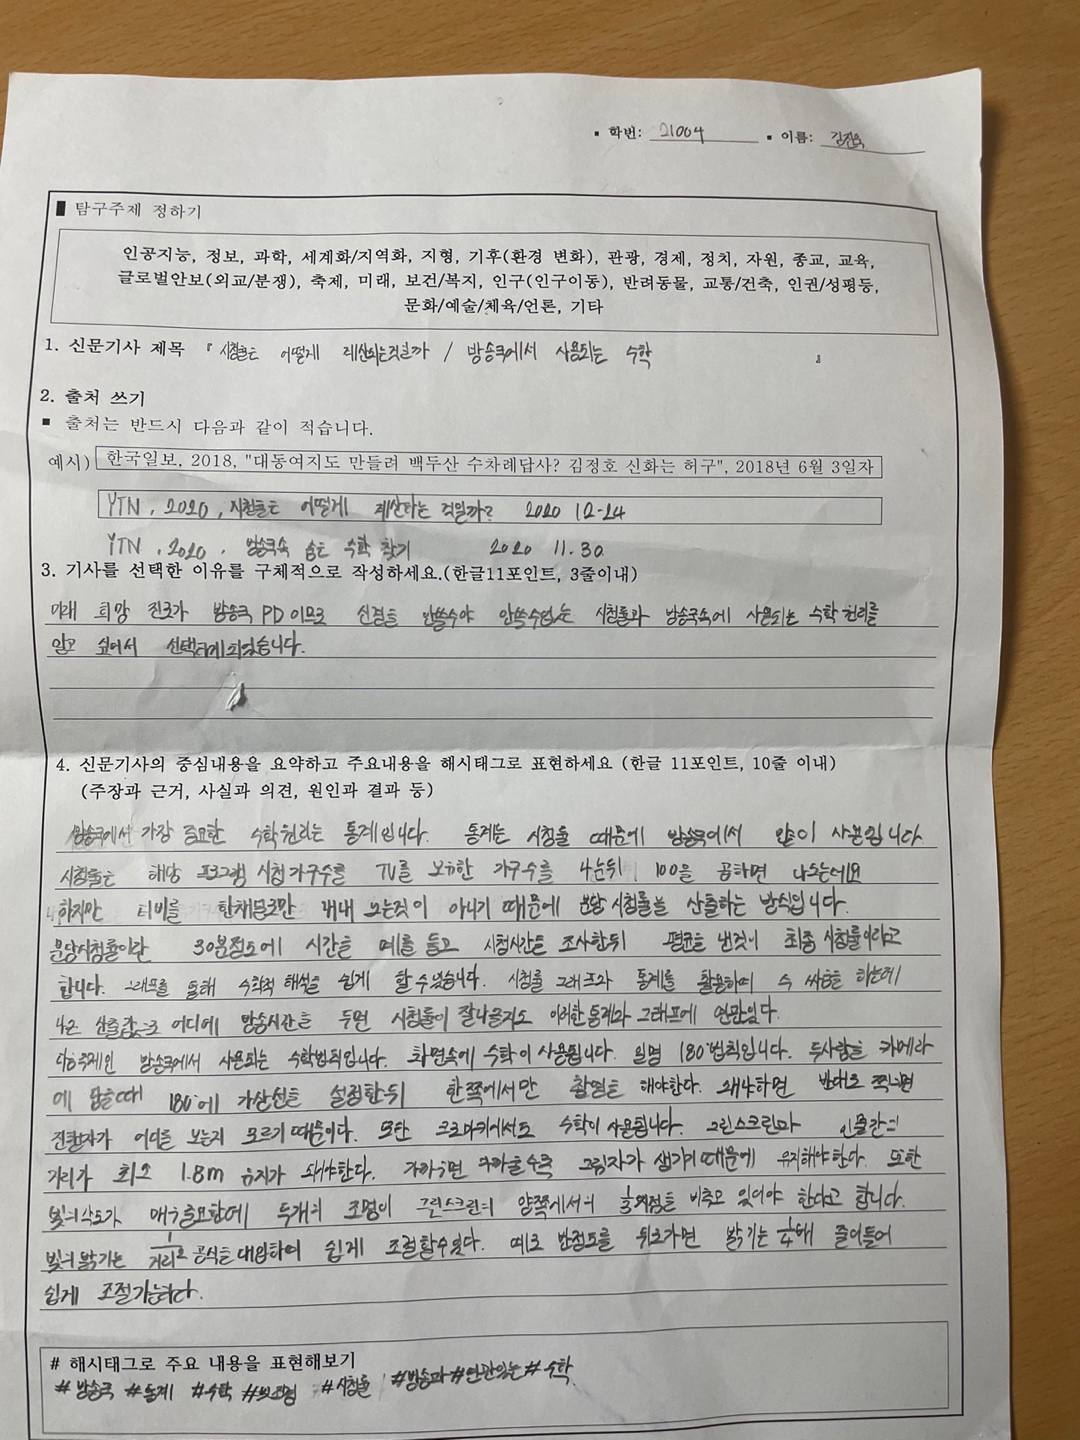 ▪ 학번: 21004 ▪ 이름: 김진욱
■ 탐구주제 정하기
인공지능, 정보, 과학, 세계화/지역화, 지형, 기후(환경 변화), 관광, 경제, 정치, 자원, 종교, 교육,
글로벌안보(외교/분쟁), 축제, 미래, 보건/복지, 인구(인구이동), 반려동물, 교통/건축, 인권/성평등,
문화/예술/체육/언론, 기타
1. 신문기사 제목 『 시청률은 어떻게 계산되는것일까 / 방송국에서 사용되는 수학 』
2. 출처 쓰기
▪ 출처는 반드시 다음과 같이 적습니다.
예시) 한국일보, 2018, "대동여지도 만들려 백두산 수차례답사? 김정호 신화는 허구", 2018년 6월 3일자
YTN, 2020, 시청률은 어떻게 계산하는 것일까? 2020 12-24
YTN, 2020, 방송국속 숨은 수학 찾기 2020 11.30
3. 기사를 선택한 이유를 구체적으로 작성하세요.(한글11포인트, 3줄이내)
미래 희망 진로가 방송국 PD이므로 신경을 안쓸수야 안쓸수없는 시청률과 방송국속에 사용되는 수학 원리를
알고 싶어서 선택하게되었습니다.
4. 신문기사의 중심내용을 요약하고 주요내용을 해시태그로 표현하세요 (한글 11포인트, 10줄 이내)
(주장과 근거, 사실과 의견, 원인과 결과 등)
방송국에서 가장 중요한 수학원리는 통계입니다. 통계는 시청률 때문에 방송국에서 많이 사용됩니다
시청률은 해당 프로그램 시청가구수를 TV를 보유한 가구수를 나눈뒤 100을 곱하면 나오는데요
하지만 티비를 한채널로만 내내 보는것이 아니기 때문에 분당 시청률을 산출하는 방식입니다.
분당시청률이란 30분정도에 시간을 예를 들고 시청시간을 조사한뒤 평균을 낸것이 최종 시청률이라고
합니다. 그래프를 통해 수학적 해석을 쉽게 할 수 있습니다. 시청률 그래프와 통계를 활용하여 수 싸움을 하는데
나온 산출값으로 어디에 방송시간을 두면 시청률이 잘나올지도 이러한 통계와 그래프에 연관있다.
다음주제인 방송국에서 사용되는 수학법칙입니다. 화면속에 수학이 사용됩니다. 일명 180°법칙입니다. 두사람을 카메라
에 담을때 180°에 가상선을 설정한뒤 한쪽에서만 촬영을 해야한다. 왜냐하면 반대로 찍으면
진행자가 어디를 보는지 모르기 때문이다. 또한 크로마키에서도 수학이 사용됩니다. 그린스크린과 인물간의
거리가 최소 1.8m 유지가 돼야한다. 가까우면 가까울수록 그림자가 생기기 때문에 유지해야한다. 또한
빛의각도가 매우중요한데 두개의 조명이 그린스크린의 양쪽에서의 1/3지점을 비추고 있어야 한다고 합니다.
빛의 밝기는 1/거리² 공식을 대입하여 쉽게 조절할수있다. 예로 반정도를 뒤로가면 밝기는 1/4배 줄어들어
쉽게 조절가능하다.
# 해시태그로 주요 내용을 표현해보기
#방송국 #통계 #수학 #시청률 #방송과#연관있는#수학